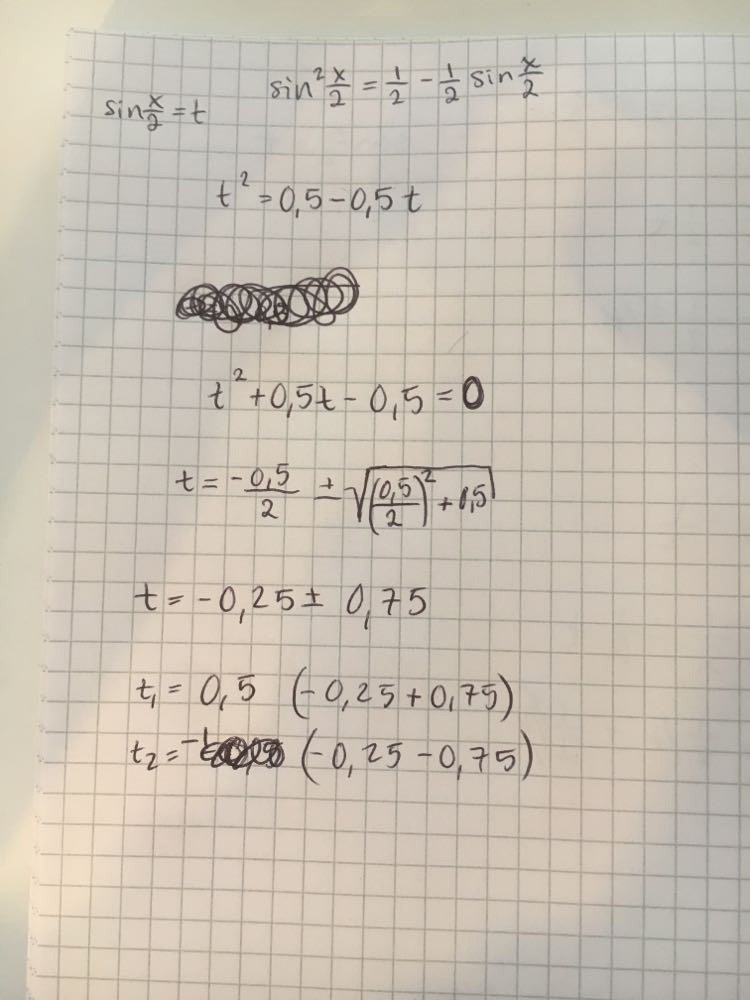 sin² x/2 = 1/2 - 1/2 sin x/2
sin x/2 = t
t² = 0,5 - 0,5 t
t² + 0,5t - 0,5 = 0
t = -0,5/2 ± √((0,5/2)² + 0,5)
t = -0,25 ± 0,75
t₁ = 0,5 (-0,25 + 0,75)
t₂ = -1 (-0,25 - 0,75)